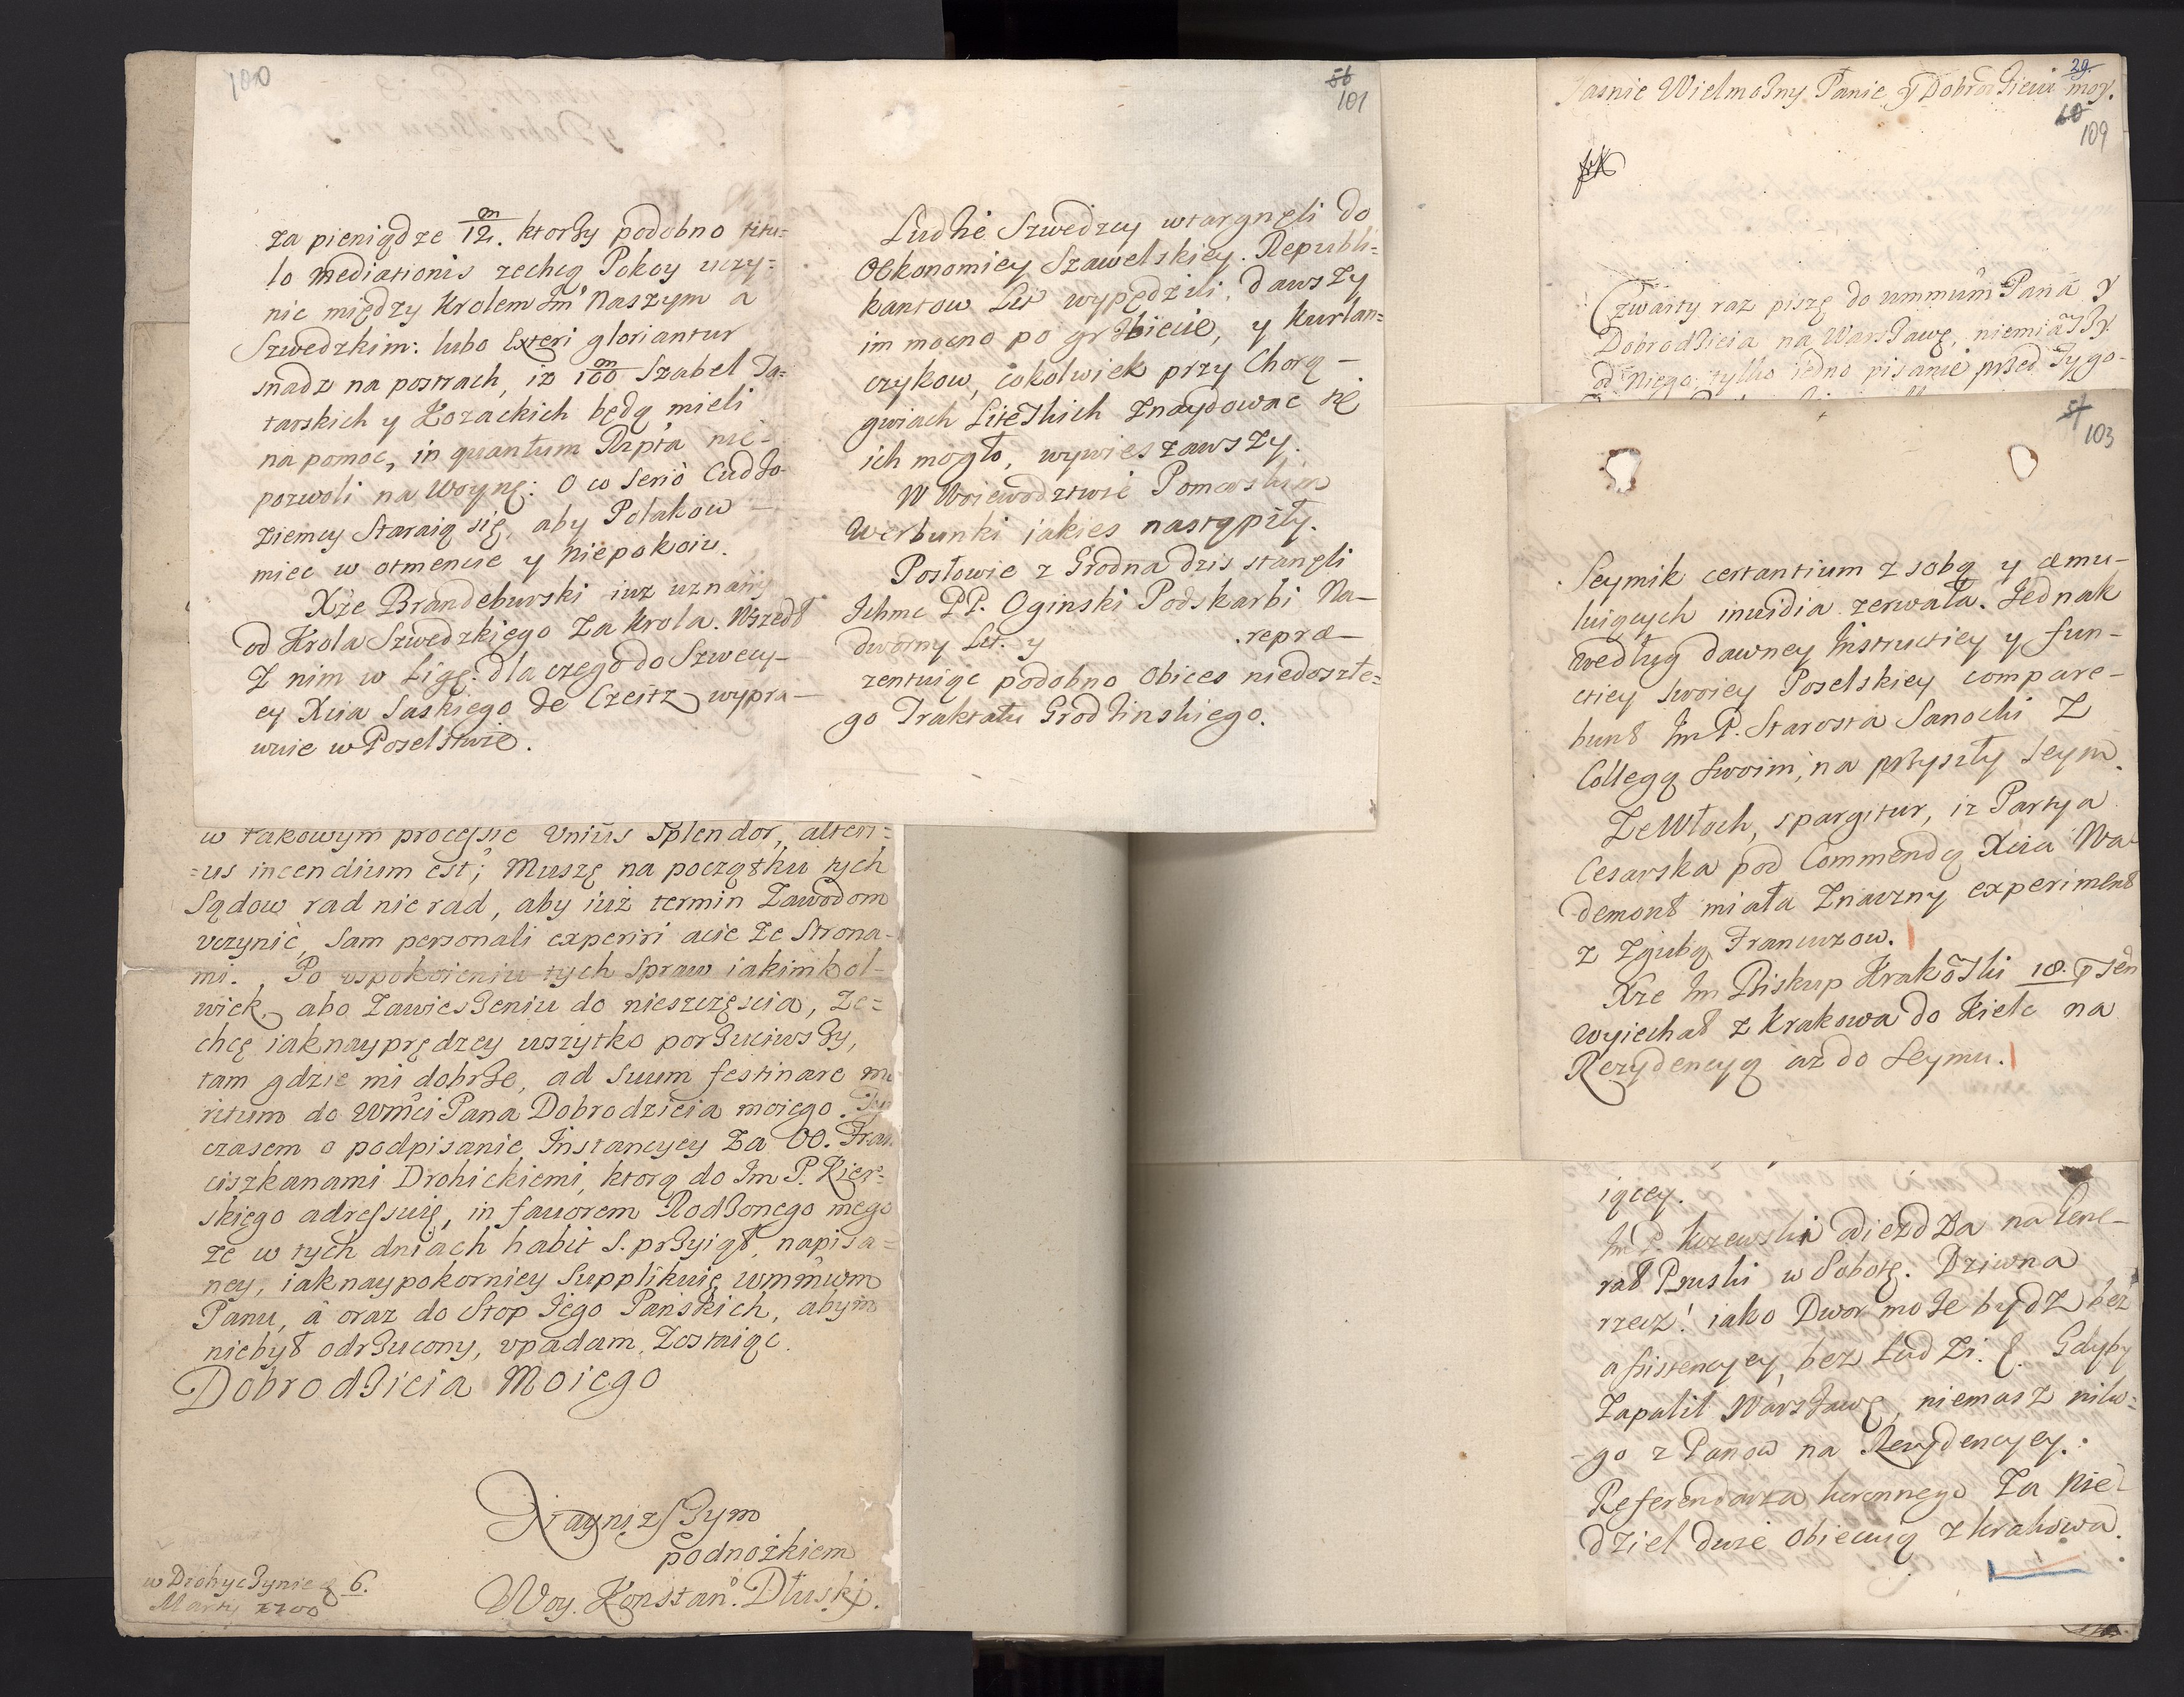 100
za pieniądze 12/m. ktorzy podobno titu=
lo Mediationis zechcą Pokoy uczy=
nic między Krolem Jm Naszym a
Szwedzkim: lubo Exteri gloriantur
snadz na postrach, iz 100/m Szabel Ta=
tarskich y Kozackich będą mieli
na pomoc, in quantum Rzpta nie-
pozwoli na Woynę: O co serio Cudzo-
ziemcy Staraią się, aby Polakow –
miec w otmencie y niepokoiu.
Xże Brandeburski iuz uznany
od Krola Szwedzkiego za Krola. Wszedł
z nim w Ligę: dla czego do Szwecy–
ey Xcia Saskiego de Czeitz wypra–
wuie w Poselstwie.
56
101
Ludzie Szwedzcy wtargnęli do
Oekonomiey Szawelskiey. Republi=
kantow Lit wypędzili, dawszy
im mocno po grzbiecie, y Kurlan=
czykow, cokolwiek przy Chorą –
gwiach Liteskich znaydowac się
ich mogło, wywieszawszy.
W Woiewodztwie Pomorskim
Werbunki iakies nastąpiły.
Posłowie z Grodna dzis stanęli
Ichmc PP. Oginski Podskarbi Na–
dworny Lit. y .repræ–
zentuiąc podobno Obices niedoszłe=
go Traktatu Grodzinskiego.
w takowym processie Unius Splendor, alteri=
=us incendium est; Muszę na początku tych
Sądow rad nie rad, aby iuż termin Zawodom
uczynić, Sam personali experiri acie ze Strona-
mi. Po uspokoieniu tych Spraw iakimkol-
wiek, abo zawieszeniu do nieszczęscia, ze=
chcę iaknayprędzey wszytko porzuciwszy,
tam gdzie mi dobrze, ad Suum festinare
ritum do Wmci Pana Dobrodzieia moiego.
czasem o podpisanie Instancyey za OO. Fran
ciszkanami Drohickiemi, ktorą do Jm P. Kier=
skiego adressuię, in favorem Rodzonego mego
ze w tych dniach habit S. przyiął, napisa=
ney, iaknaypokorniey Supplikuię wmmwm
Panu, à oraz do Stop Jego Pańskich, abym
niebył odrzucony, upadam, Zostaiąc
Dobrodzieia Moiego
Nayniższym
podnożkiem
Woy. Konstan. Dłuski.
w Drohyczynie 6.
Marty 1700
29.
Jasnie Wielmozny Panie y Dobrodzieiu moy.
60
109
Czwarty raz piszę do ummum Pana y
Dobrodzieia na Warszawę, niemiaszy
od Niego, tylko iedno pisanie przed Tygo-
57
103
Seymik certantium z sobą y æmu–
luiących invidia zerwała. Jednak
według dawney Instructiey y fun–
ctiey swoiey Poselskiey compare–
bunt Jm P. Starosta Sanocki z
Collegą swoim, na przyszły Seym.
Ze Włoch, spargitur, iz Partya
Cesarska pod Commendą Xcia Wa–
demont miała znaczny experiment
z zgubą Francuzow.
Xże Jm Biskup Krakowski 18. psen
wyiechał z Krakowa do Kielc na
Rezydencyą az do Seymu.
iącey.
Jm P. odiezdza na Gene–
rał Pruski w Sobotę. Dziwna
rzecz! iako Dwor moze bydz bez
assistencyey, bez Ludzi. Gdyby
zapalił Warszawę, niemasz niko=
-go z Panow na Rezydencyey.
Referendarza koronnego za nie
dziel dwie obiecuią z Krakowa.